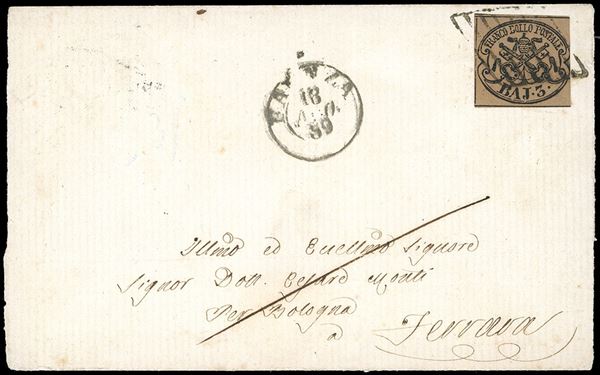 FRANCO BOLLO PONTIFICIO
BAJ. 3.
FAENZA
18
AGO.
59
Illmo ed Eccellmo Signore
Signor Dott. Cesare Monti
Per Bologna
a Ferrara